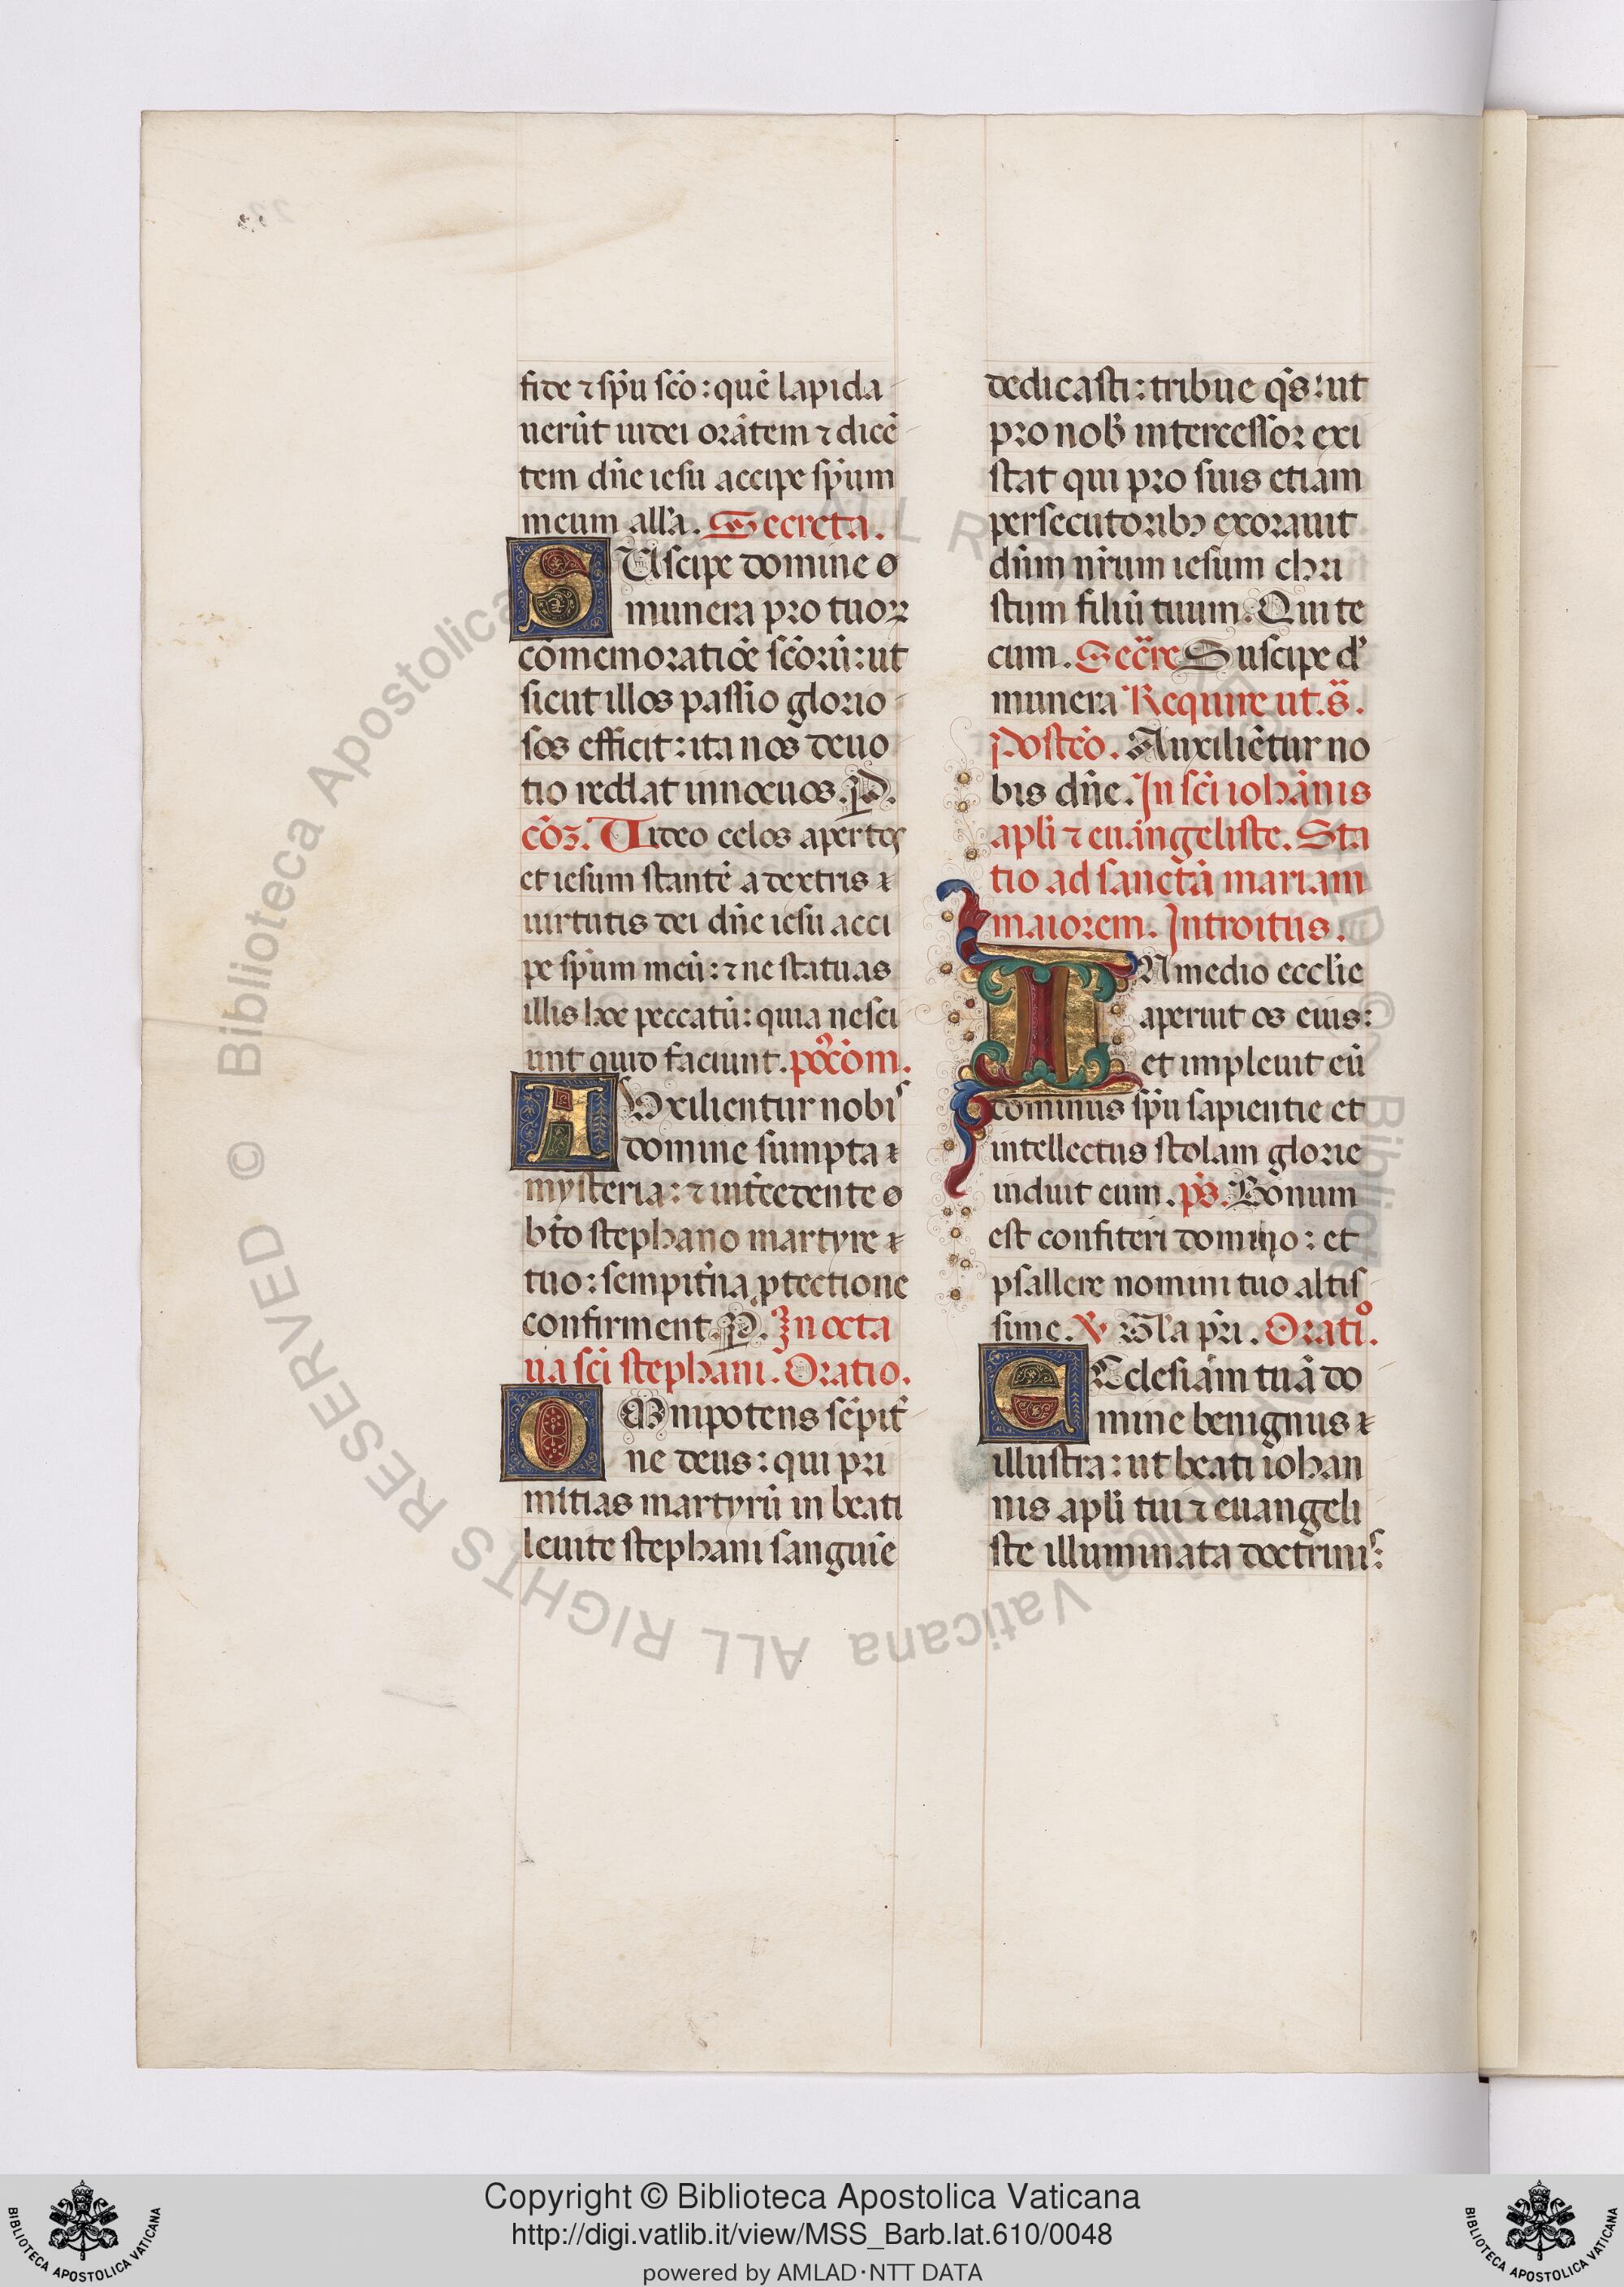 fide ⁊ sp̄u sc̄o: quē lapida
uerūt iudei orātem ⁊ dicē
tem dn̄e iesu accipe sp̄um
meum all'a. Secreta.
SUscipe domine
munera pro tuoꝝ
cōmemoratiōe sc̄orū: ut
sicut illos passio glorio
sos efficit: ita nos deuo
tio reddat innocuos. P.
cōꝫ. Uideo celos apertos
et iesum stantē a dextris
uirtutis dei dn̄e iesu acci
pe sp̄um meū: ⁊ ne statuas
illis hoc peccatū: quia nesci
unt quid faciunt. poc̄om.
AUxilientur nobis
domine sumpta
mysteria: ⁊ int̄cedente
bt̄o stephano martyre
tuo: sempit̄na ꝓtectione
confirment. P. In octa
ua sc̄i stephani. Oratio.
OMnipotens sēpit̄
ne deus: qui pri
mitias martyrū in beati
leuite stephani sanguīe
dedicasti: tribue q̄s: ut
pro nob̄ intercessor exi
stat qui pro suis etiam
persecutoribꝫ exorauit
dn̄m nr̄um iesum chri
stum filiū tuum. Qui te
cum. Sec̄re Suscipe d'
munera Require ut. s̄.
Postcō. Auxiliētur no
bis dn̄e. In sc̄i iohānis
apl'i ⁊ euangeliste. Sta
tio ad sanctā mariam
maiorem. Introitus.
IN medio eccl'ie
aperuit os eius:
et impleuit eū
dominus sp̄u sapientie et
intellectus stolam glorie
induit eum. ps̄. Bonum
est confiteri domino: et
psallere nomini tuo altis
sime. ℣ Gl'a pr̄i. Oratio.
ECclesiam tuā do
mine benignus
illustra: ut beati iohan
nis apl'i tui ⁊ euangeli
ste illuminata doctrinis:
© Biblioteca Apostolica Vaticana ALL RIGHTS RESERVED
BIBLIOTECA APOSTOLICA VATICANA
Copyright © Biblioteca Apostolica Vaticana
http://digi.vatlib.it/view/MSS_Barb.lat.610/0048
powered by AMLAD·NTT DATA
BIBLIOTECA APOSTOLICA VATICANA